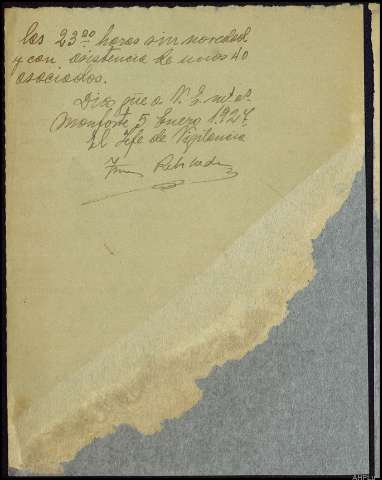 las 23'00 horas sin novedad
y con asistencia de unos 40
asociados.
Dios gue a V. E. ms as
Monforte 5 Enero 1924
El Jefe de Vigilancia
AHPLu